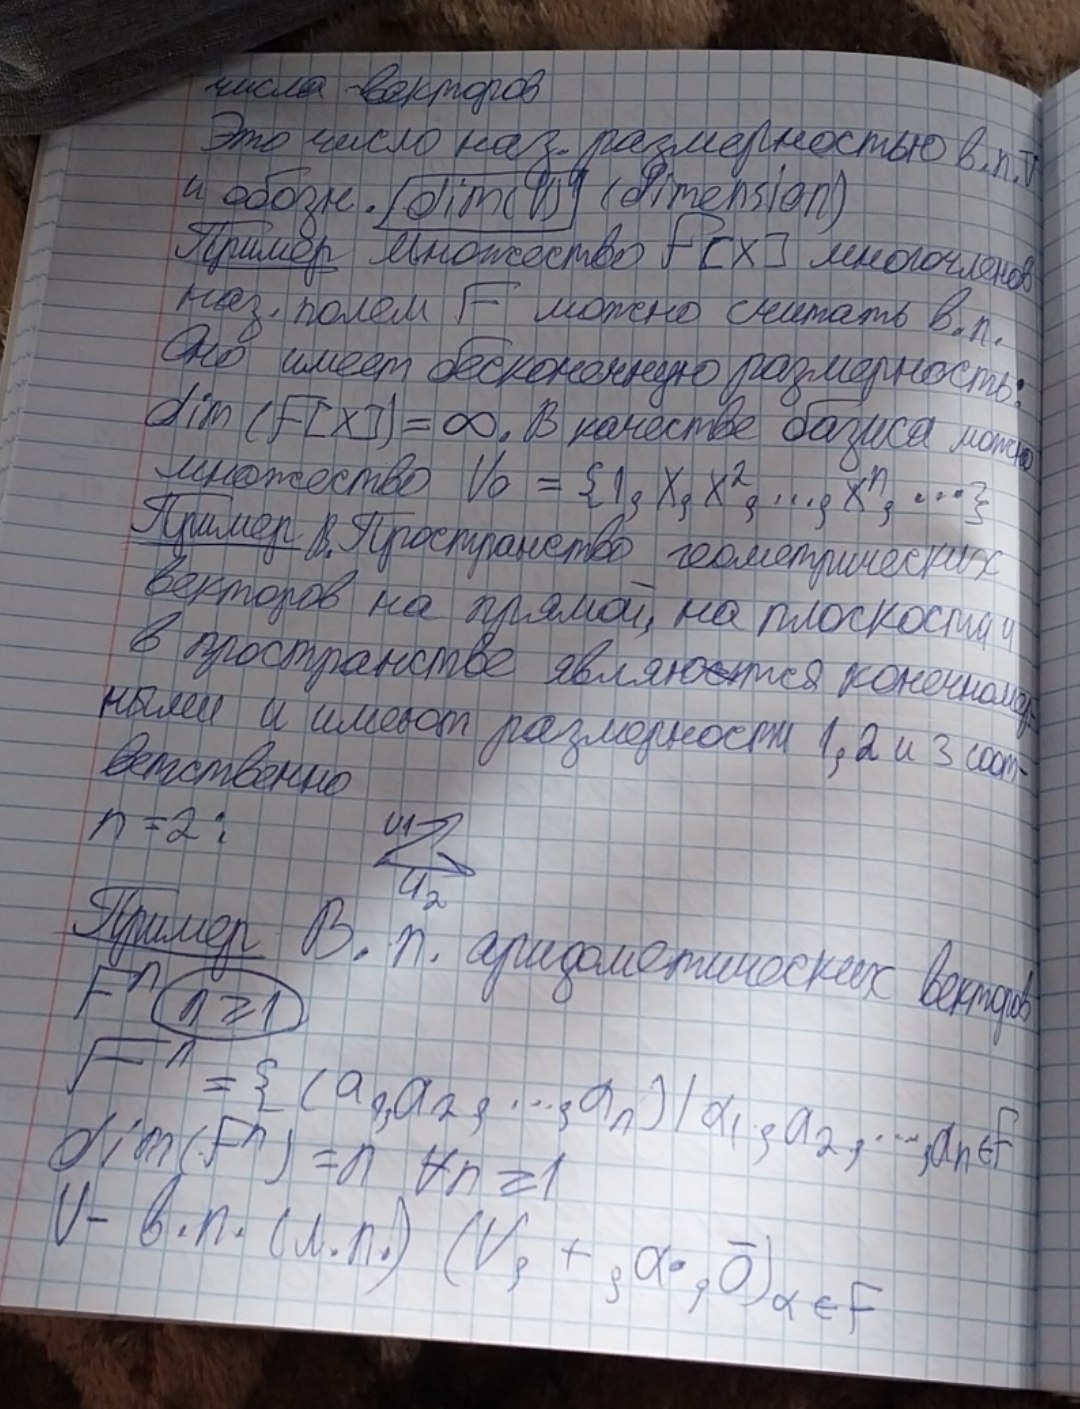 числа векторов
Это число наз. размерностью в.п. V
и обозн. dim(V) (dimension)
Пример Множество F[x] многочленов
наз. полем F можно считать в.п.
Оно имеет бесконечную размерность:
dim (F[x]) = ∞. В качестве базиса можно
множество V₀ = {1, x, x², ..., xⁿ, ...}
Пример В. Пространство геометрических
векторов на прямой, на плоскости и
в пространстве являются конечномер-
ными и имеют размерности 1, 2 и 3 соот-
ветственно
n = 2:
v₁
v₂
Пример В. п. арифметических векторов
Fⁿ n ≥ 1
Fⁿ = {(a, a₂, ..., aₙ) | α₁, a₂, ..., aₙ ∈ F
dim(Fⁿ) = n ∀n ≥ 1
V – в.п. (л.п.) (V, +, α·, ō)α ∈ F